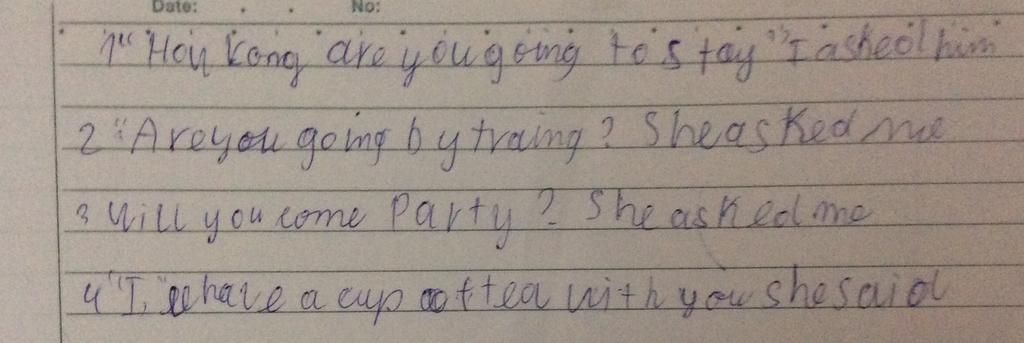 Date: . . No:
1 "How Long are you going to stay" I asked him
2 "Are you going by traing? She asked me
3 Will you come Party? She asked me
4 "I, have a cup of tea with you she said